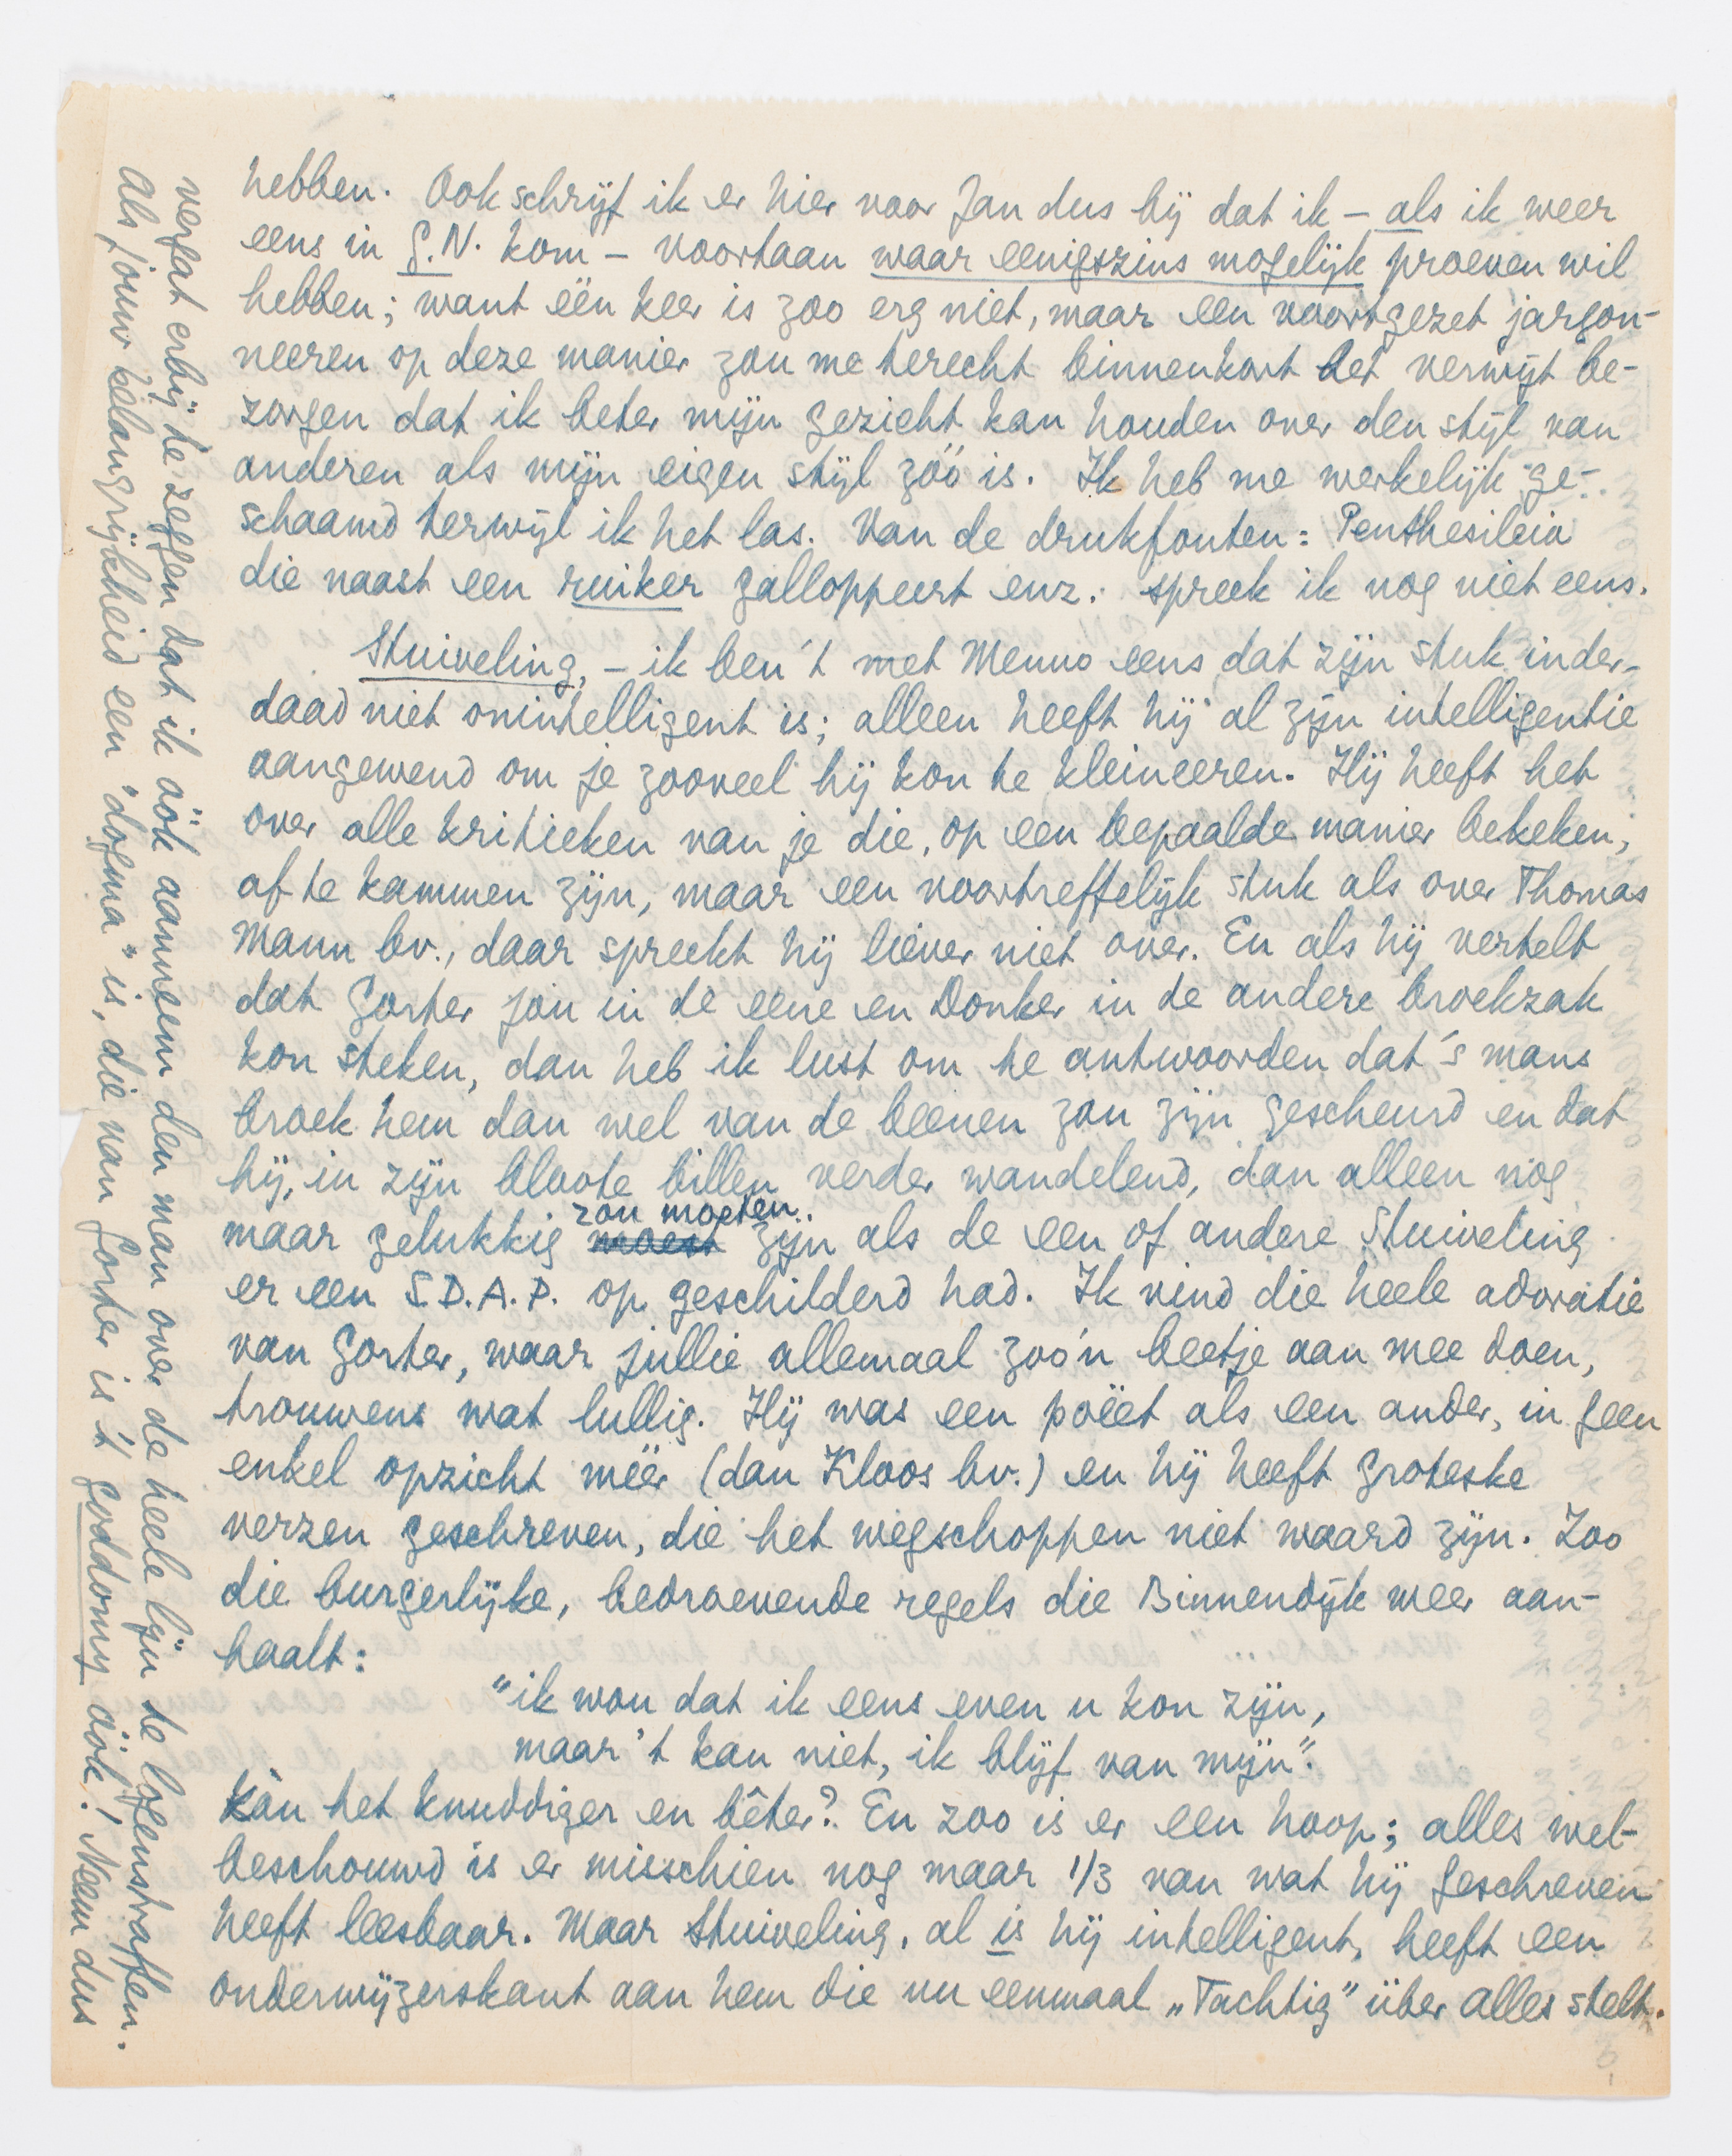 hebben. Ook schrijf ik er hier voor Jan dus bij dat ik — als ik weer
eens in G.N. kom — voortaan waar eenigszins mogelijk proeven wil
hebben; want één keer is zoo erg niet, maar een voortgezet jargon-
neeren op deze manier zou me terecht binnenkort het verwijt be-
zorgen dat ik beter mijn gezicht kan houden over den stijl van
anderen als mijn eigen stijl zóó is. Ik heb me werkelijk ge-
schaamd terwijl ik het las. Van de drukfouten: Penthesileia
die naast een ruiker galloppeert enz. spreek ik nog niet eens.
Stuiveling, — ik ben 't met Menno eens dat zijn stuk inder-
daad niet onintelligent is; alleen heeft hij al zijn intelligentie
aangewend om je zooveel hij kon te kleineeren. Hij heeft het
over alle kritieken van je die, op een bepaalde manier bekeken,
af te kammen zijn, maar een voortreffelijk stuk als over Thomas
Mann bv., daar spreekt hij liever niet over. En als hij vertelt
dat Gorter jou in de eene en Donker in de andere broekzak
kon steken, dan heb ik lust om te antwoorden dat 's mans
broek hem dan wel van de beenen zou zijn gescheurd en dat
hij, in zijn bloote billen verder wandelend, dan alleen nog
zou moeten
maar gelukkig moest zijn als de een of andere Stuiveling
er een S.D.A.P. op geschilderd had. Ik vind die heele adoratie
van Gorter, waar jullie allemaal zoo'n beetje aan mee doen,
trouwens wat lullig. Hij was een poëet als een ander, in geen
enkel opzicht méér (dan Kloos bv.) en hij heeft groteske
verzen geschreven, die het wegschoppen niet waard zijn. Zoo
die burgerlijke, bedroevende regels die Binnendijk weer aan-
haalt:
"ik wou dat ik eens even u kon zijn,
maar 't kan niet, ik blijf van mijn".
Kán het knuddiger en bêter? En zoo is er een hoop; alles wel-
beschouwd is er misschien nog maar 1/3 van wat hij geschreven
heeft leesbaar. Maar Stuiveling, al is hij intelligent, heeft een
onderwijzerskant aan hem die nu eenmaal „Tachtig" über alles stelt.
vergat erbij te zeggen dat ik óók aanneem den man over de heele lijn te logenstraffen.
Als jouw belangrijkheid een "dogma" is, die van Gorter is 't goddomy óók! Neem dus